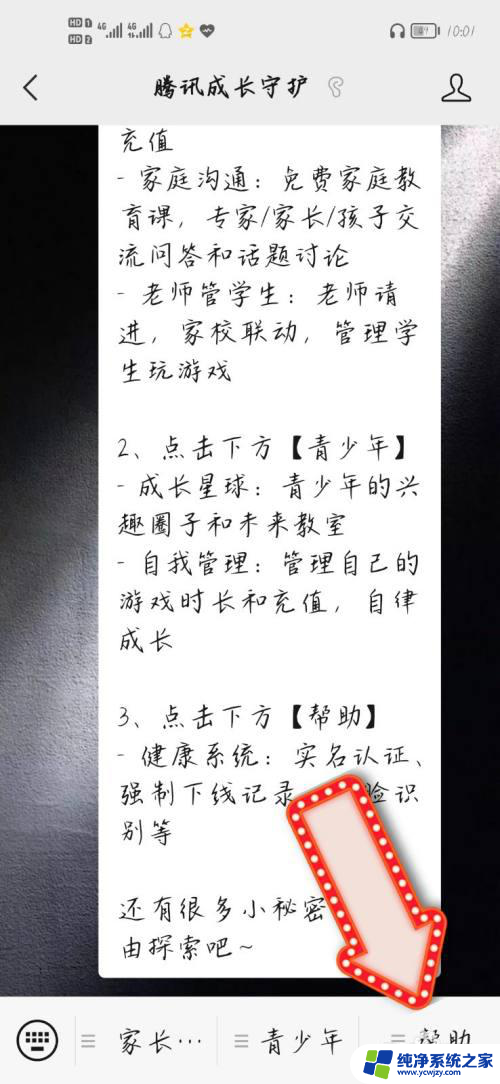 HD 1 4G 4G 10:01
HD 2
腾讯成长守护
充值
- 家庭沟通：免费家庭教
育课，专家/家长/孩子交
流问答和话题讨论
- 老师管学生：老师请
进，家校联动，管理学
生玩游戏
2、点击下方【青少年】
- 成长星球：青少年的兴
趣圈子和未来教室
- 自我管理：管理自己的
游戏时长和充值，自律
成长
3、点击下方【帮助】
- 健康系统：实名认证、
强制下线记录 脸识
别等
还有很多小秘密
由探索吧~
家长… 青少年 帮助
纯净系统之家
www.ycwjzy.com